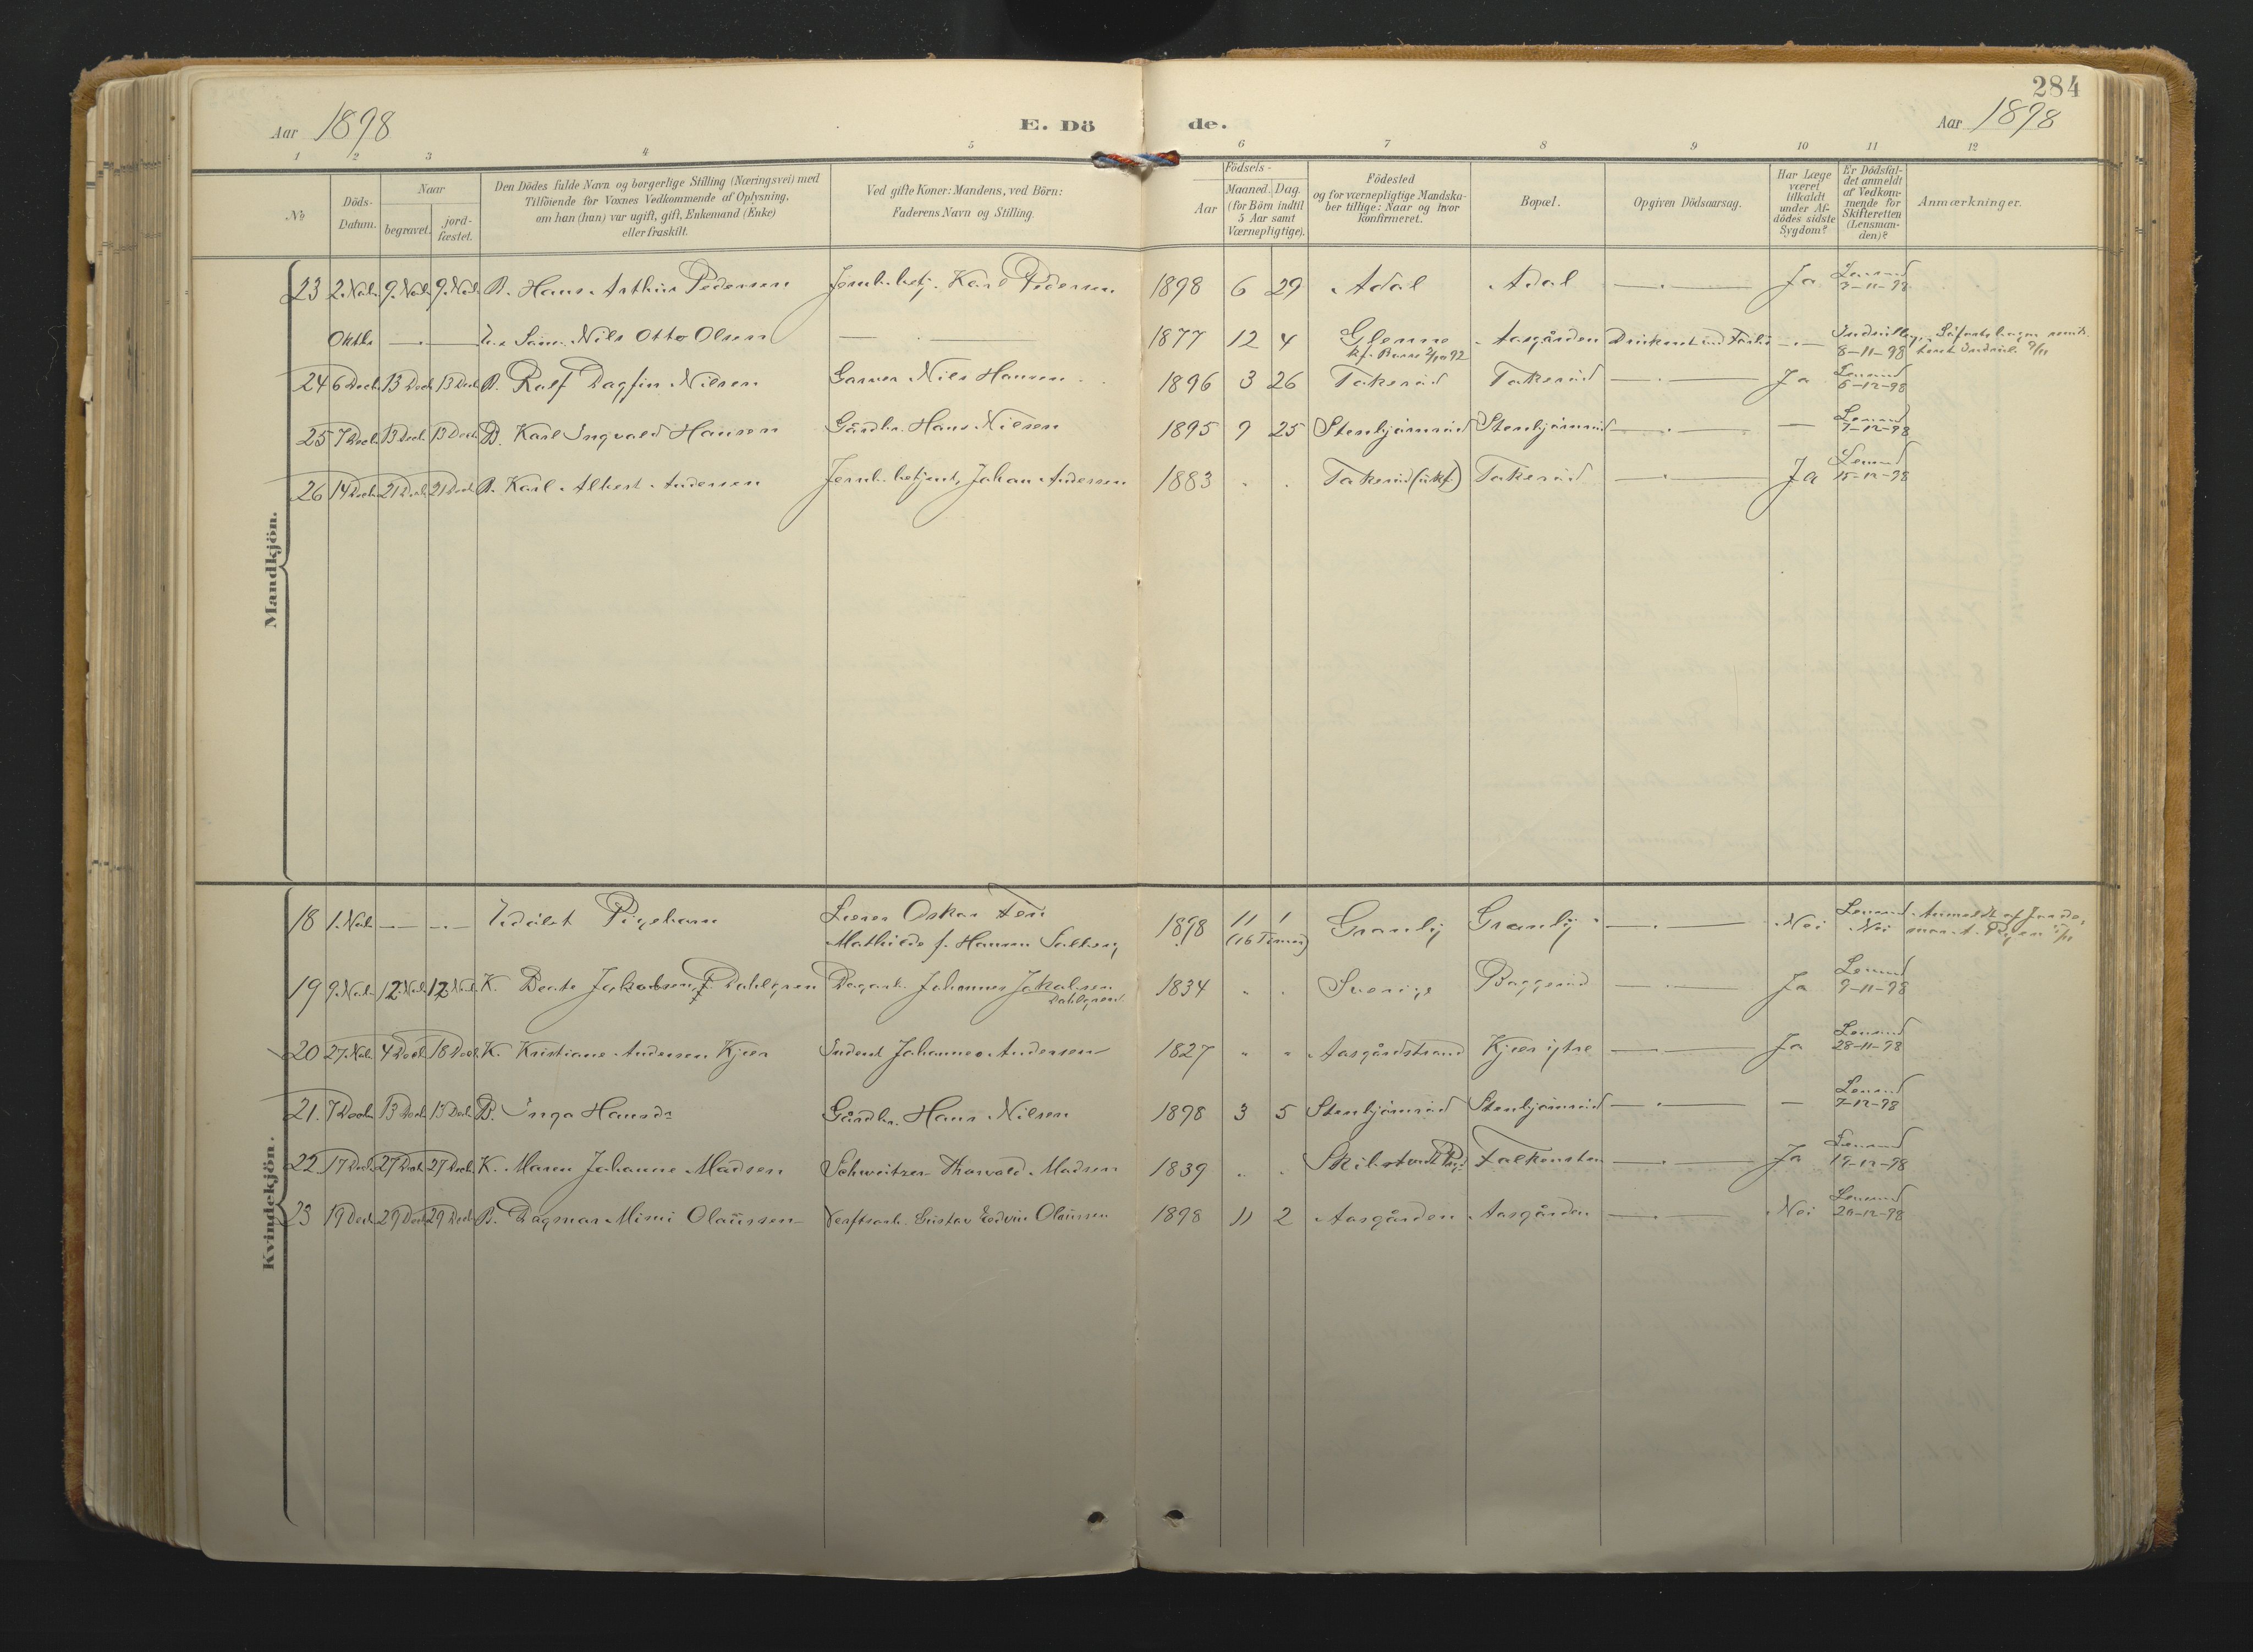 284
Aar 1898
E. Dö de.
Aar 1898
1 2 3 4 5 6 7 8 9 10 11 12
№
Döds-
Datum.
Naar
begravet.
jord-
fæstet.
Den Dödes fulde Navn og borgerlige Stilling (Næringsvei) med
Tilföiende for Voxnes Vedkommende af Oplysning,
om han (hun) var ugift, gift, Enkemand (Enke)
eller fraskilt.
Ved gifte Koner: Mandens, ved Börn:
Faderens Navn og Stilling.
Födsels-
Aar
Maaned. Dag.
(for Börn indtil
5 Aar samt
Værnepligtige).
Födested
og for værnepligtige Mandska-
ber tillige: Naar og hvor
konfirmeret.
Bopæl.
Opgiven Dödsaarsag.
Har Læge
været
tilkaldt
under Af-
dödes sidste
Sygdom?
Er Dödsfal-
det anmeldt
af Vedkom-
mende for
Skifteretten
(Lensman-
den)?
Anmærkninger.
Mandkjön.
23 2. Nov. 9. Nov. 9. Nov. B. Hans Arthur Pedersen Jernb.betj. Karl Pedersen 1898 6 29 Adal Adal — . — Ja Lensmd 3-11-98
Oktbr — . — Nils Otto Olsen — . — 1877 12 4 Glenne Aasgården — . — 8-11-98
kf. Borre 2/10 92
24 6 Decb. 13 Decb. 13 Decb. B. Ralf Dagfin Nilsen Garver Nils Hansen 1896 3 26 Takerud Takerud — . — Ja Lensmd 6-12-98
25 7 Decb. 13 Decb. 13 Decb. B. Karl Ingvald Hansen Gårdbr. Hans Nilsen 1895 9 25 Stenbjörnrud Stenbjörnrud — . — — Lensmd 7-12-98
26 14 Decb. 21 Decb. 21 Decb. B. Karl Albert Andersen Jernb.betjent, Johan Andersen 1883 . . Takerud (ukf.) Takerud — . — Ja Lensmd 15-12-98
Kvindekjön.
18 1. Nov. — . — Udöbt Pigebarn Lærer Oskar Fen 1898 11 1 Granly Granly — . — Nei Lensmd Nei Anmeldt af Jorde-
Mathilde f. Hansen (16 Timer)
19 9. Nov. 12. Nov. 12 Nov. K. Beate Jakobsen f. Dahlgren Dagarb. Johannes Jakobsen 1834 " . Sverige Baggerud — . — Ja Lensmd 9-11-98
Dahlgren
20 27. Nov. 4 Decb. 18 Decb. K. Kristiane Andersen Kjær Johannes Andersen 1827 " " Aasgårdstrand Kjær ytre — . — Ja Lensmd 28-11-98
21. 7 Decb. 13 Decb. 13 Decb. B. Inga Hansdr Gårdbr. Hans Nilsen 1898 3 5 Stenbjörnrud Stenbjörnrud — . — — Lensmd 7-12-98
22 17 Decb. 27 Decb. 27 Decb. K. Maren Johanne Madsen Schweitzer Thorvald Madsen 1839 . . Falkensten — . — Ja Lensmd 19-12-98
23 19 Decb. 29 Decb. 29 Decb. B. Dagmar Mimi Olaüssen Verftsarb. Gustav Edvin Olaüssen 1898 11 2 Aasgården Aasgården — . — Nei Lensmd 20-12-98